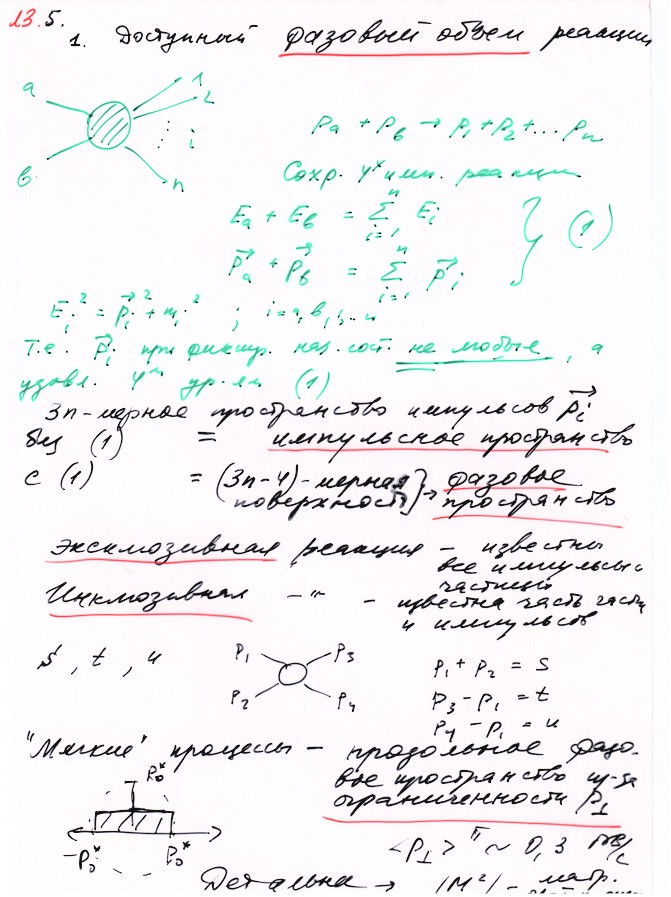 13.5.
1. Доступный фазовый объем реакции
a
1
2
i
b
n
p_a + p_b → p_1 + p_2 + ... p_n
Сохр. 4^x имп. реакции
E_a + E_b = Σ_{i=1}^{n} E_i
p⃗_a + p⃗_b = Σ_{i=1}^{n} p⃗_i } (1)
E_i² = p⃗_i² + m_i² ; i = a, b, 1, .. n
т.е. p⃗_i при фиксир. нач. сост. не любые, а
удовл. 4^м ур-ям (1)
3n-мерное пространство импульсов p⃗_i
без (1) = импульсное пространство
с (1) = (3n-4)-мерная поверхность } → фазовое пространство
Эксклюзивная реакция – известны
все импульсы
частиц
Инклюзивная -"- – известна часть частиц
и импульсов
s, t, u
P_1 P_3
P_2 P_4
p_1 + p_2 = s
p_3 - p_1 = t
p_4 - p_1 = u
"Мягкие" процессы – продольное фазо-
вое пространство из-за
ограниченности p_⊥
p_0^*
-p_0^* p_0^*
<p_⊥>^π ~ 0,3 ГэВ/с
Детальна → |M²| - матр.